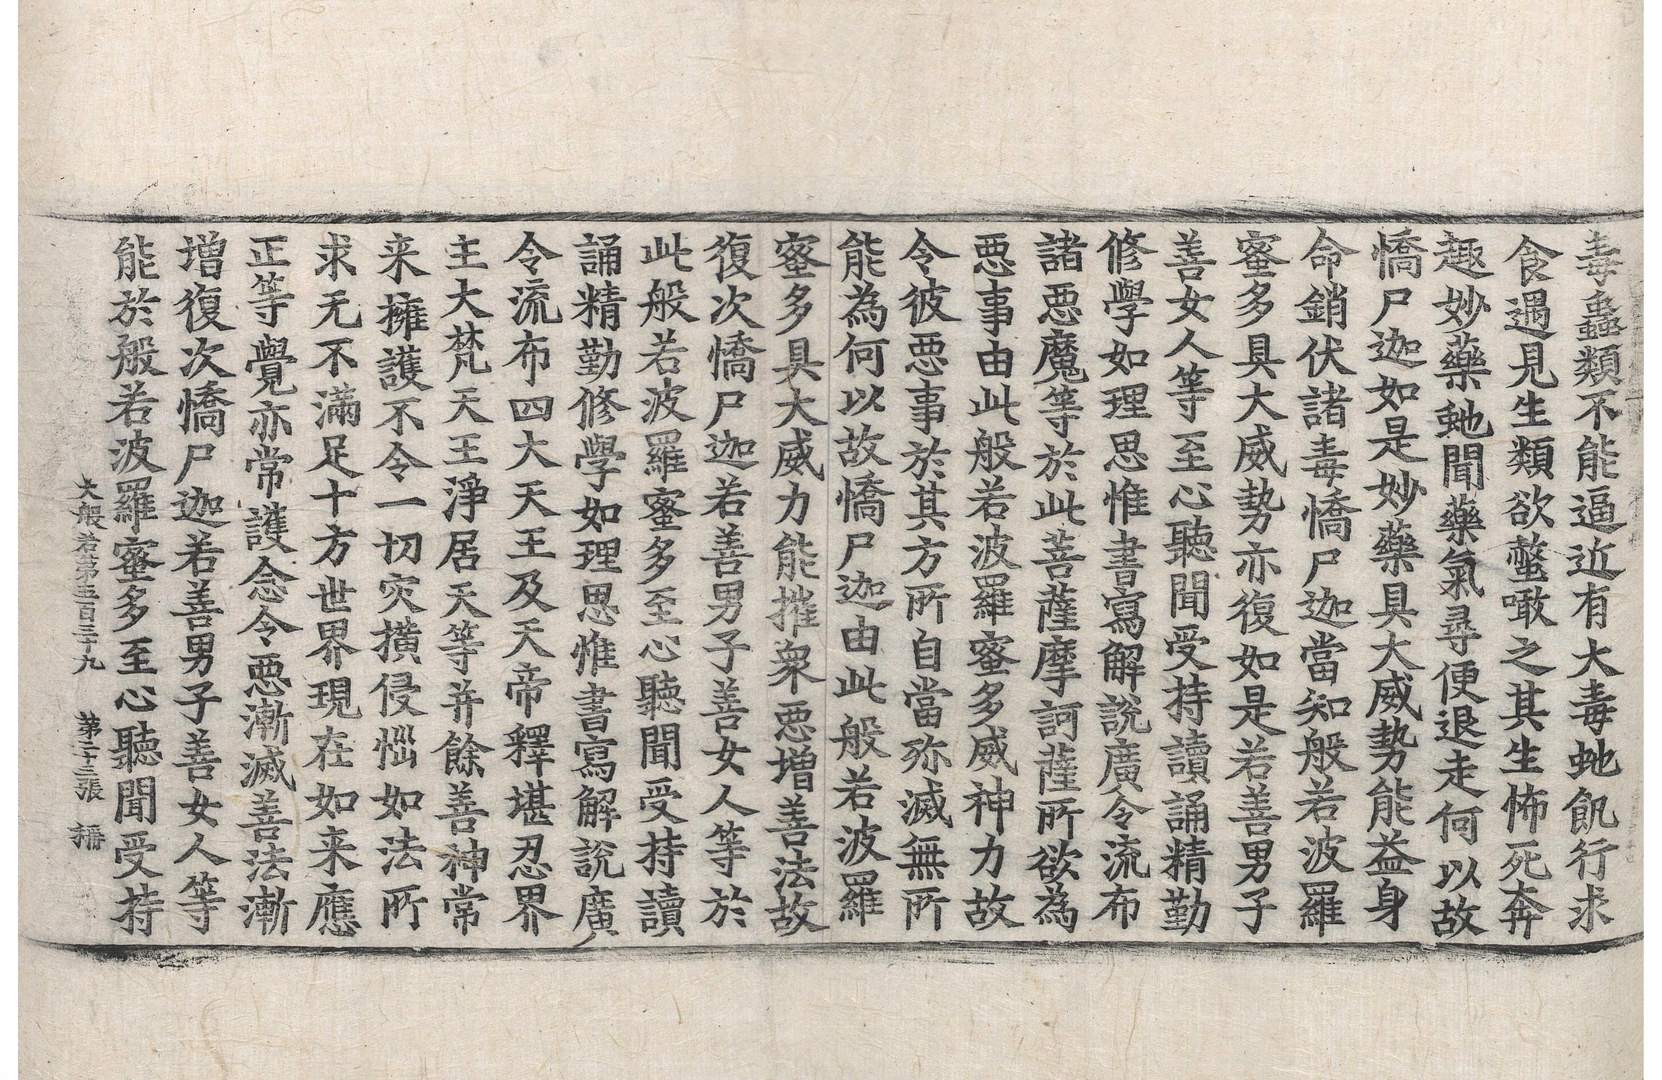 毒蟲類不能逼近有大毒虵飢行求
食遇見生類欲螫噉之其生怖死奔
趣妙藥虵聞藥氣尋便退走何以故
憍尸迦如是妙藥具大威勢能益身
命銷伏諸毒憍尸迦當知般若波羅
蜜多具大威勢亦復如是若善男子
善女人等至心聽聞受持讀誦精勤
修學如理思惟書寫解說廣令流布
諸惡魔等於此菩薩摩訶薩所欲為
惡事由此般若波羅蜜多威神力故
令彼惡事於其方所自當弥滅無所
能為何以故憍尸迦由此般若波羅
蜜多具大威力能摧衆惡增善法故
復次憍尸迦若善男子善女人等於
此般若波羅蜜多至心聽聞受持讀
誦精勤修學如理思惟書寫解說廣
令流布四大天王及天帝釋堪忍界
主大梵天王淨居天等并餘善神常
来擁護不令一切灾橫侵惱如法所
求无不滿足十方世界現在如来應
正等覺亦常護念令惡漸滅善法漸
增復次憍尸迦若善男子善女人等
能於般若波羅蜜多至心聽聞受持
大般若第五百三十九 第二十三張